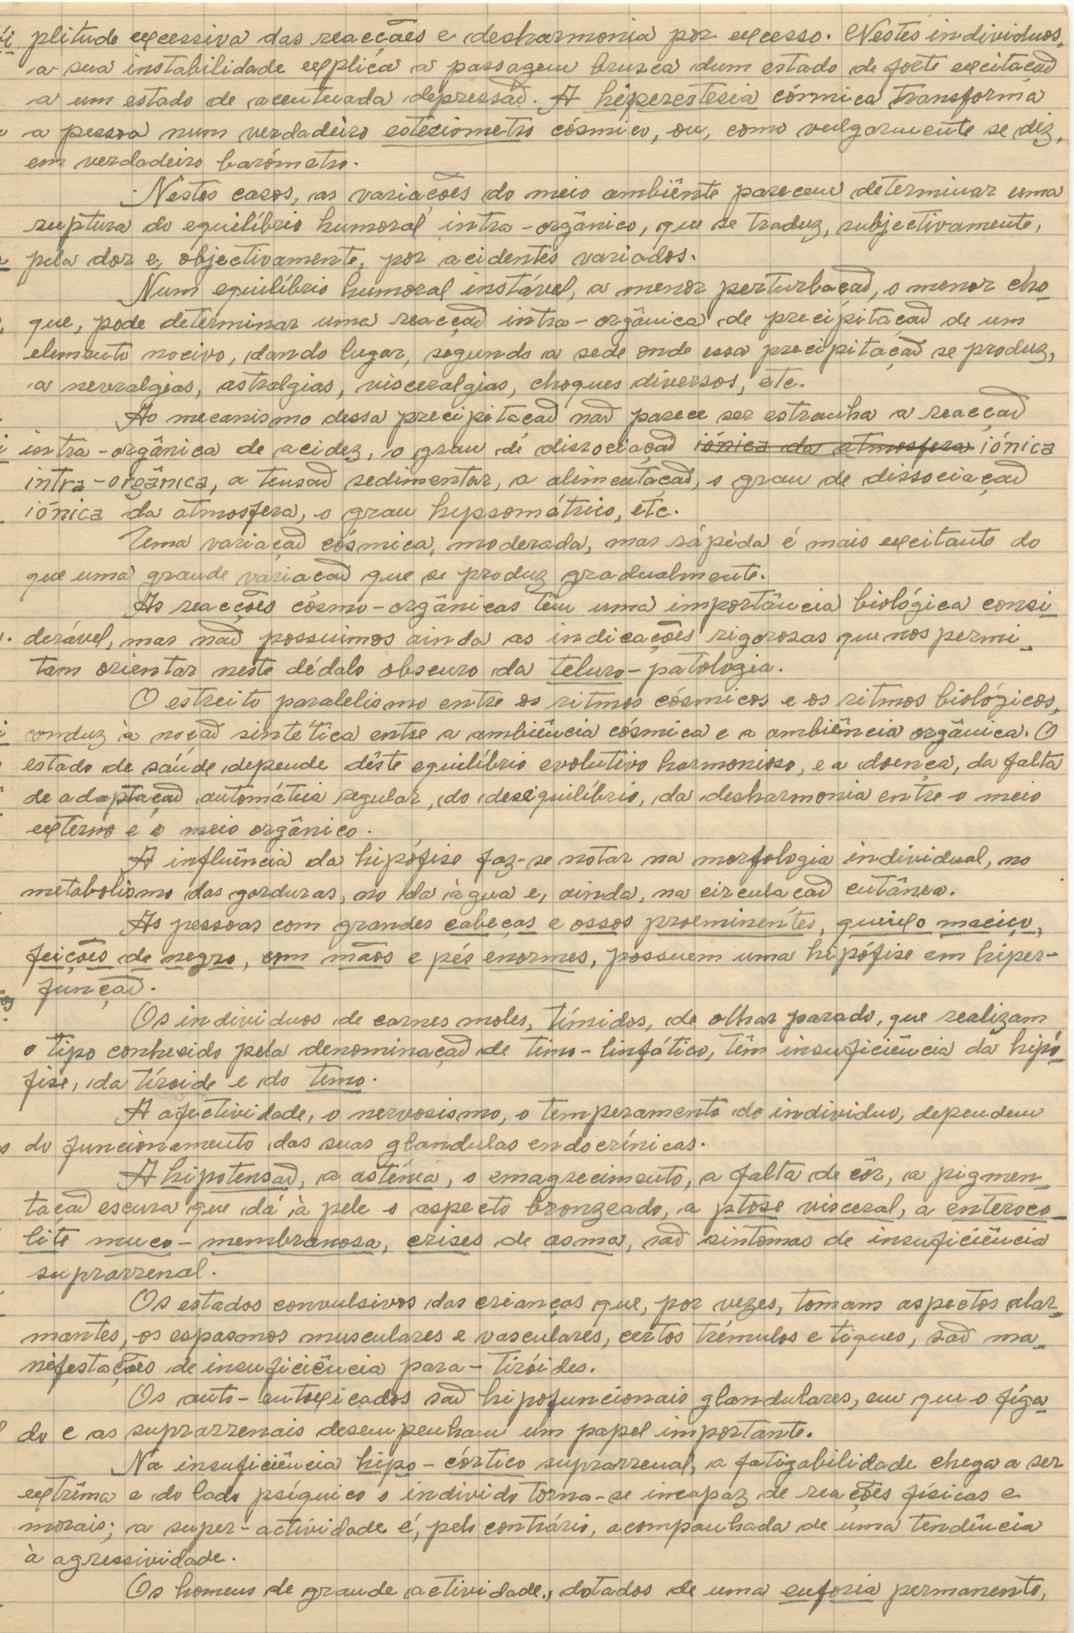 plitude excessiva das reacções e desharmonia por excesso. Nestes individuos,
a sua instabilidade explica a passagem brusca dum estado de forte excitação
a um estado de acentuada depressão. A hiperestesia cósmica transforma
a pessoa num verdadeiro estesiometro cósmico, ou, como vulgarmente se diz,
em verdadeiro barómetro.
Nestes casos, as variações do meio ambiente parecem determinar uma
ruptura do equilíbrio humoral intra-orgânico, que se traduz, subjectivamente,
pela dor e, objectivamente, por acidentes variados.
Num equilíbrio humoral instável, a menor perturbação, o menor cho-
que, pode determinar uma reacção intra-orgânica de precipitação de um
elemento nocivo, dando lugar, segundo a sede onde essa precipitação se produz,
a nevralgias, astralgias, visceralgias, choques diversos, etc.
Ao mecanismo dessa precipitação não parece ser estranha a reacção
intra-orgânica de acidez, o grau de dissociação iónica da atmosfera iónica
intra-orgânica, a tensão sedimentar, a alimentação, o grau de dissociação
iónica da atmosfera, o grau hypsométrico, etc.
Uma variação cósmica, moderada, mas rápida é mais excitante do
que uma grande variação que se produz gradualmente.
As reacções cósmo-orgânicas têm uma importância biológica consi-
derável, mas não possuimos ainda as indicações rigorosas que nos permi-
tam orientar neste dédalo obscuro da teluro-patologia.
O estreito paralelismo entre os ritmos cósmicos e os ritmos biológicos,
conduz à noção sintética entre a ambiência cósmica e a ambiência orgânica. O
estado de saúde depende dêste equilíbrio evolutivo harmonioso, e a doença, da falta
de adaptação automática regular, do desequilíbrio, da desharmonia entre o meio
externo e o meio orgânico.
A influência da hipófise faz-se notar na morfologia individual, no
metabolismo das gorduras, no da água e, ainda, na circulação cutânea.
As pessoas com grandes cabeças e ossos proeminentes, queixo maciço,
feições de negro, com mãos e pés enormes, possuem uma hipófise em hiper-
função.
Os individuos de carnes moles, tímidos, de olhar parado, que realizam
o tipo conhecido pela denominação de timo-linfático, têm insuficiência da hipó-
fise, da tíroide e do timo.
A afectividade, o nervosismo, o temperamento do individuo, dependem
do funcionamento das suas glandulas endocrínicas.
A hipotensão, a astenia, o emagrecimento, a falta de côr, a pigmen-
tação escura que dá à pele o aspecto bronzeado, a ptose visceral, a enteroco-
lite muco-membranosa, crises de asma, são sintomas de insuficiência
suprarrenal.
Os estados convulsivos das crianças que, por vezes, tomam aspectos alar-
mantes, os espasmos musculares e vasculares, certos trémulos e tiques, são ma-
nifestações de insuficiência para-tiróides.
Os auto-intoxicados são hipofuncionais glandulares, em que o figa-
do e as suprarrenais desempenham um papel importante.
Na insuficiência hipo-córtico suprarrenal, a fatigabilidade chega a ser
extrêma e do lado psíquico o individo torna-se incapaz de reações físicas e
morais; a super-actividade é, pelo contrário, acompanhada de uma tendência
à agressividade.
Os homens de grande actividade, dotados de uma euforia permanente,